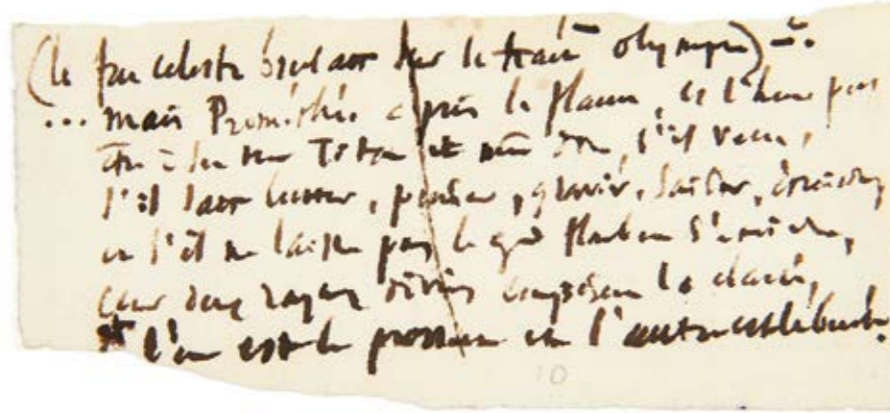 (le feu celeste brulait sur le olympe) —.
... mais Prométhée a pris la flamme, et l'homme peut
être à son tour Titan et même dieu, s'il veut,
s'il sait lutter, penser, gravir, saisir, étreindre,
et s'il ne laisse pas le grand flambeau s'éteindre,
car deux rayons divins composent la clarté,
l'un est la et l'autre est